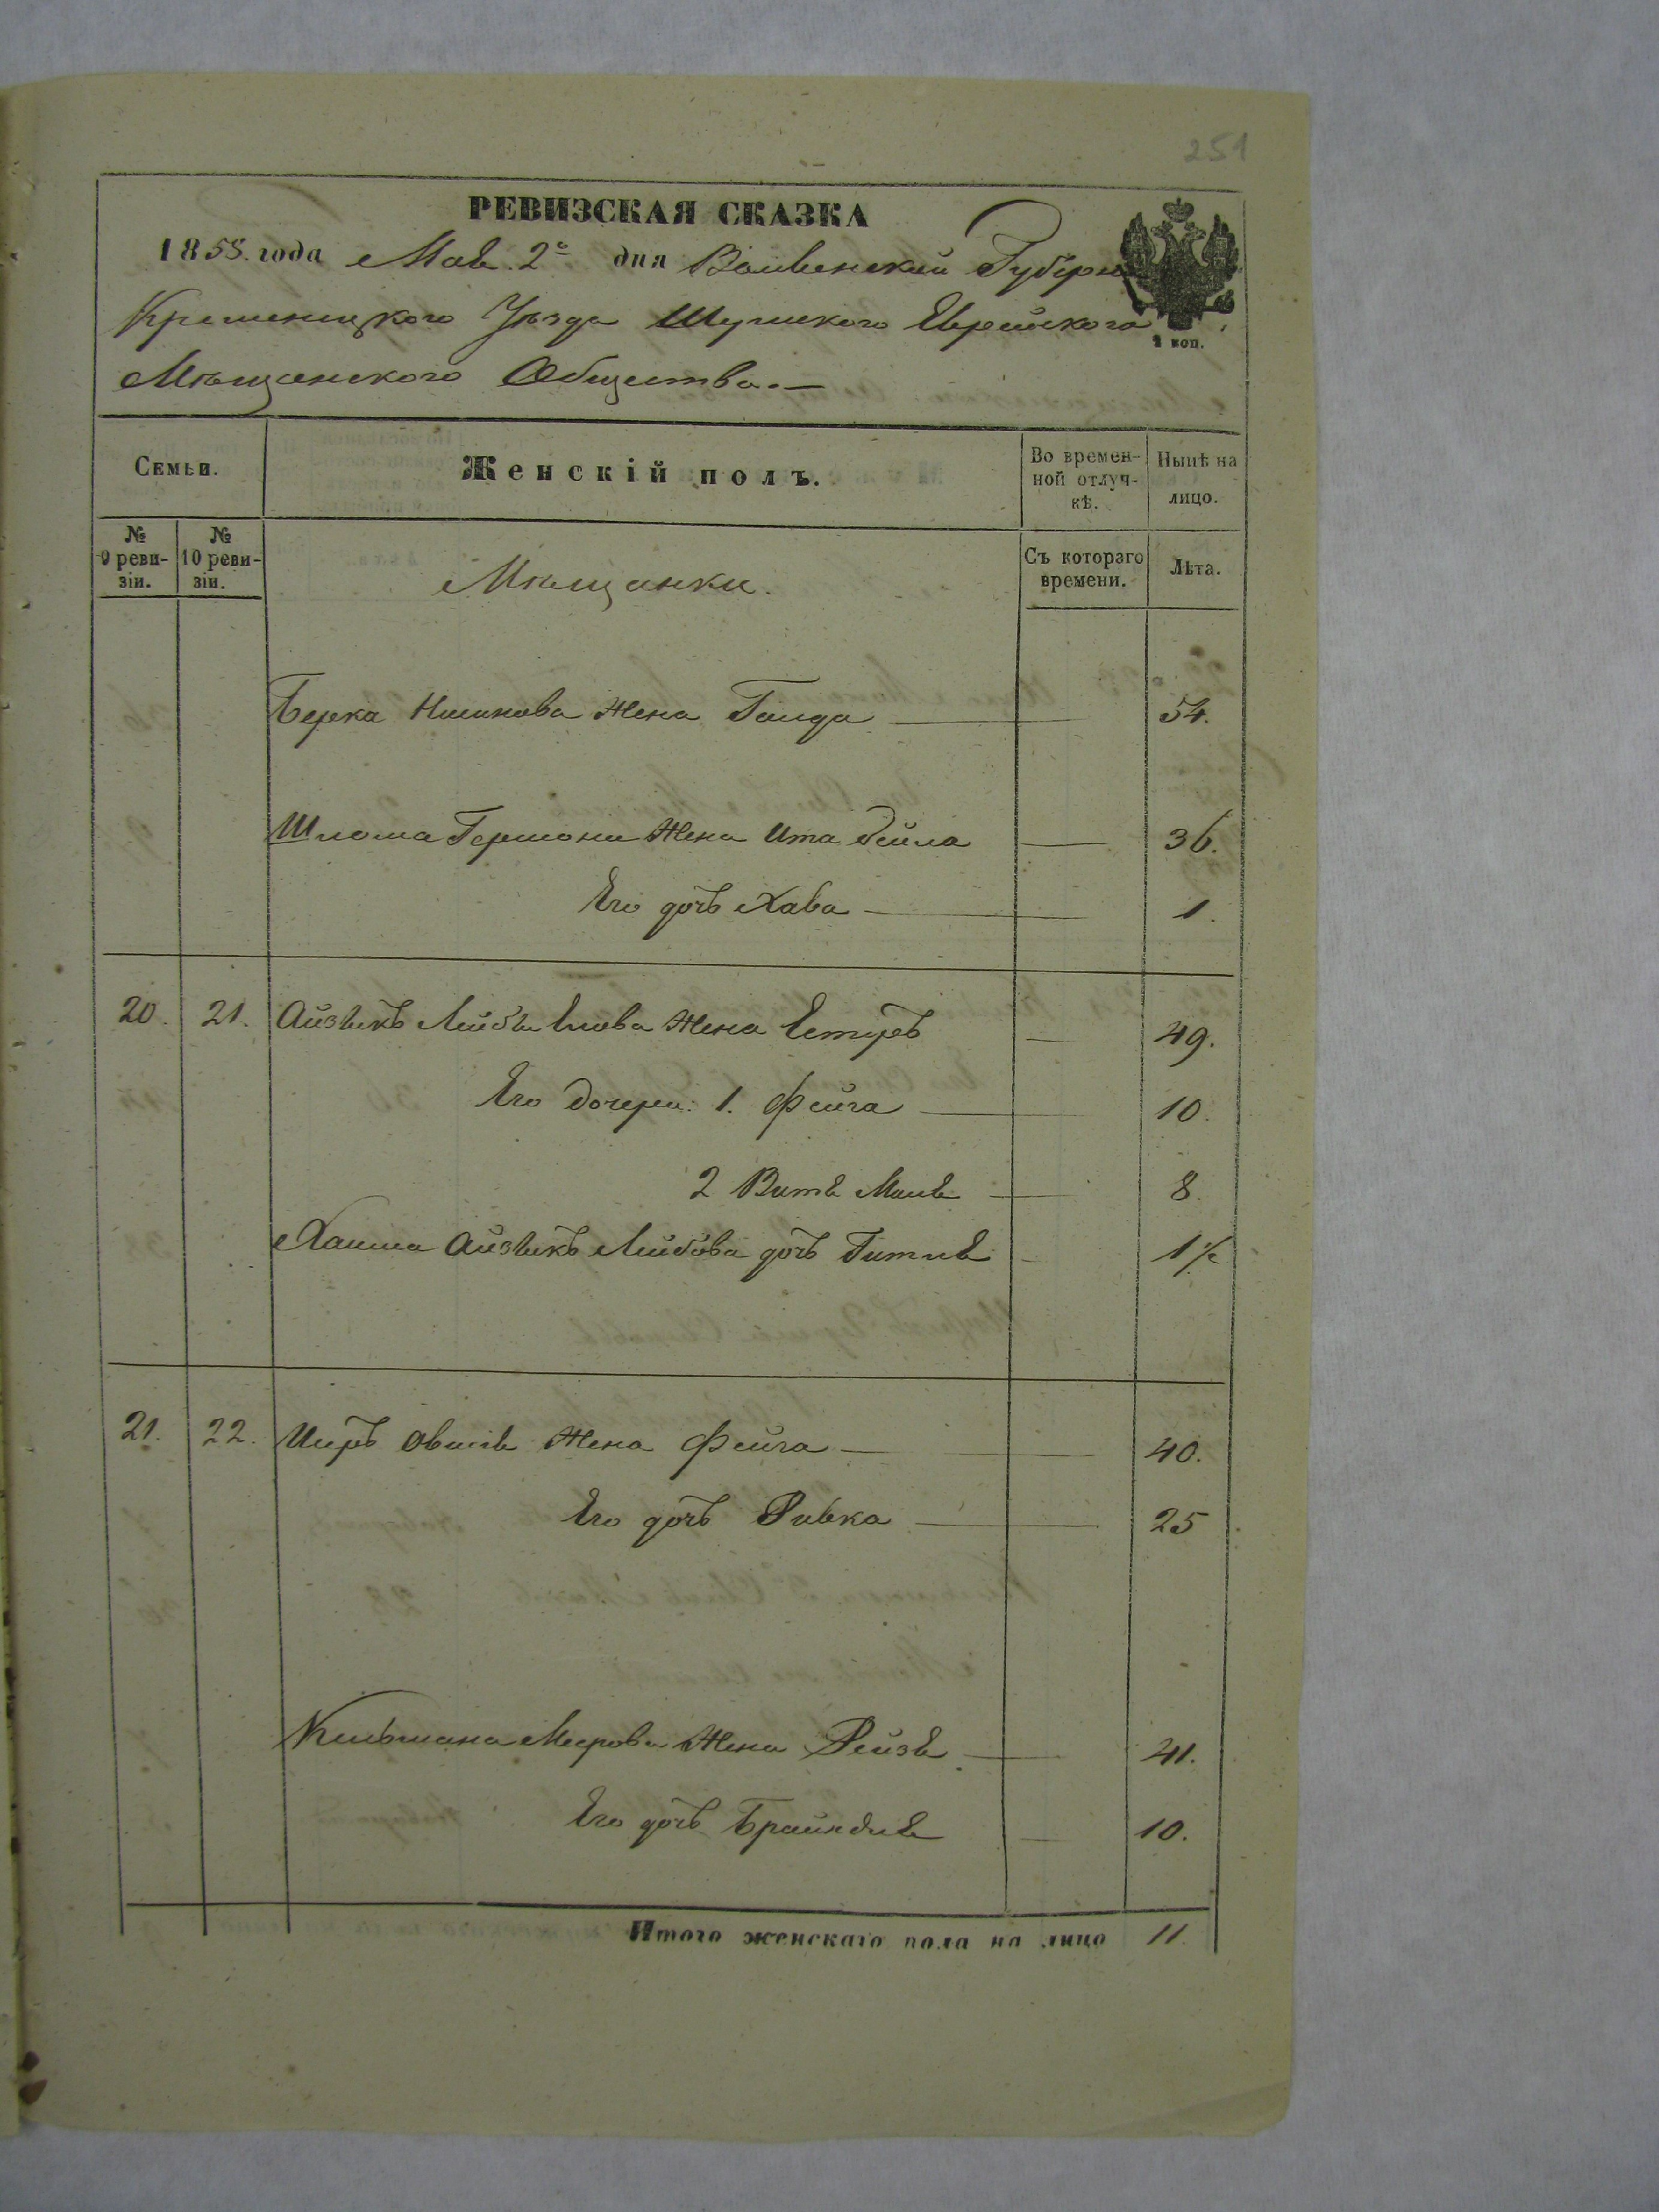 251
РЕВИЗСКАЯ СКАЗКА
1858. года Мая 2го дня Волынской Губернии
Кременецкого Уѣзда Шумского Еврейского
Мѣщанского Общества.—
2 коп.
Семьи. Женскій полъ. Во временной отлучкѣ. Нынѣ на лицо.
№ 9 ревизіи. № 10 ревизіи. Мѣщанки. Съ котораго времени. Лѣта.
Берка жена 54.
Шлома жена Ита Бейла 36.
Его дочь Хава 1.
20. 21. Айзикъ Лейбы жена Естеръ 49.
Его дочери: 1. Фейга 10.
2 Витя Маля 8.
Хаима Айзикъ Лейбова дочь Гитля 1½
21. 22. жена Фейга 40.
Его дочь Ривка 25
Кельмана Меерова жена Рейзя 41.
Его дочь Брайндля 10.
Итого женскаго пола на лицо 11